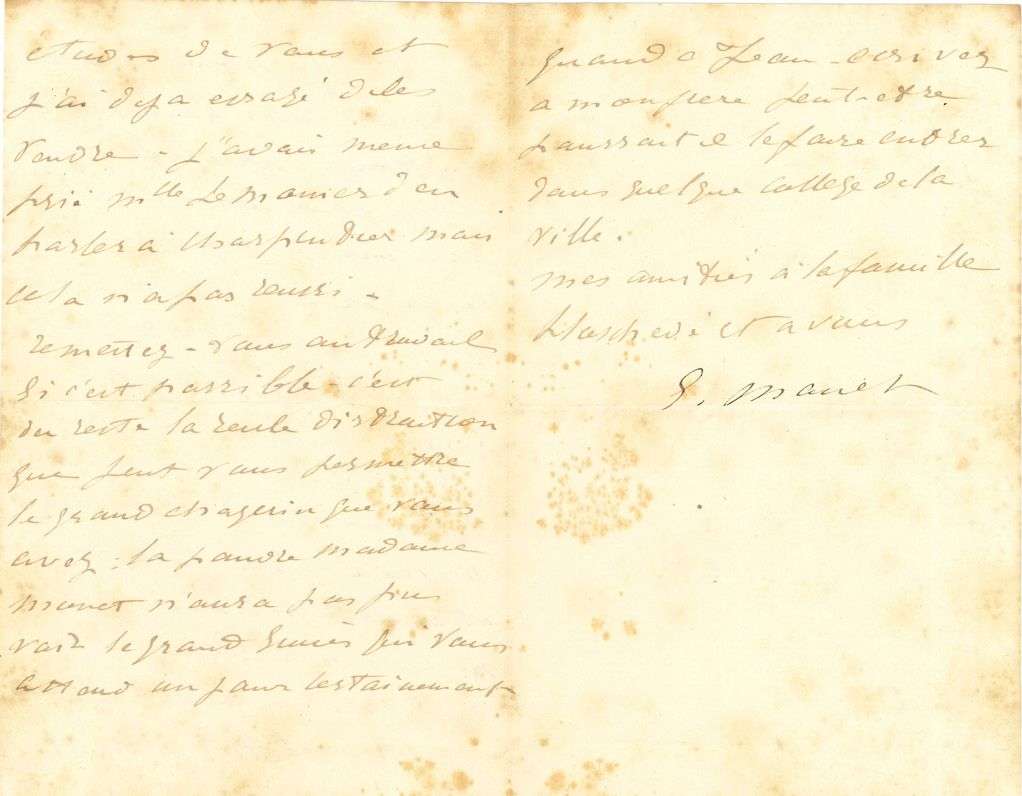 études de vous et
j'ai deja essayé de les
vendre - j'avais meme
prié Mlle Lemonier d'en
parler à Charpentier mais
cela n'a pas reussi -
remettez-vous au travail
si c'est possible - c'est
du reste la seule distraction
que peut vous permettre
le grand chagrin que vous
avez. la pauvre madame
Monet n'aura pas pu
voir le grand succès qui vous
attend un jour certainement
quand a Jean - ecrivez
a mon frere peut-etre
pourrait il le faire entrer
dans quelque college de la
ville.
mes amitiés à la famille
Hoschedé et a vous
E. Manet